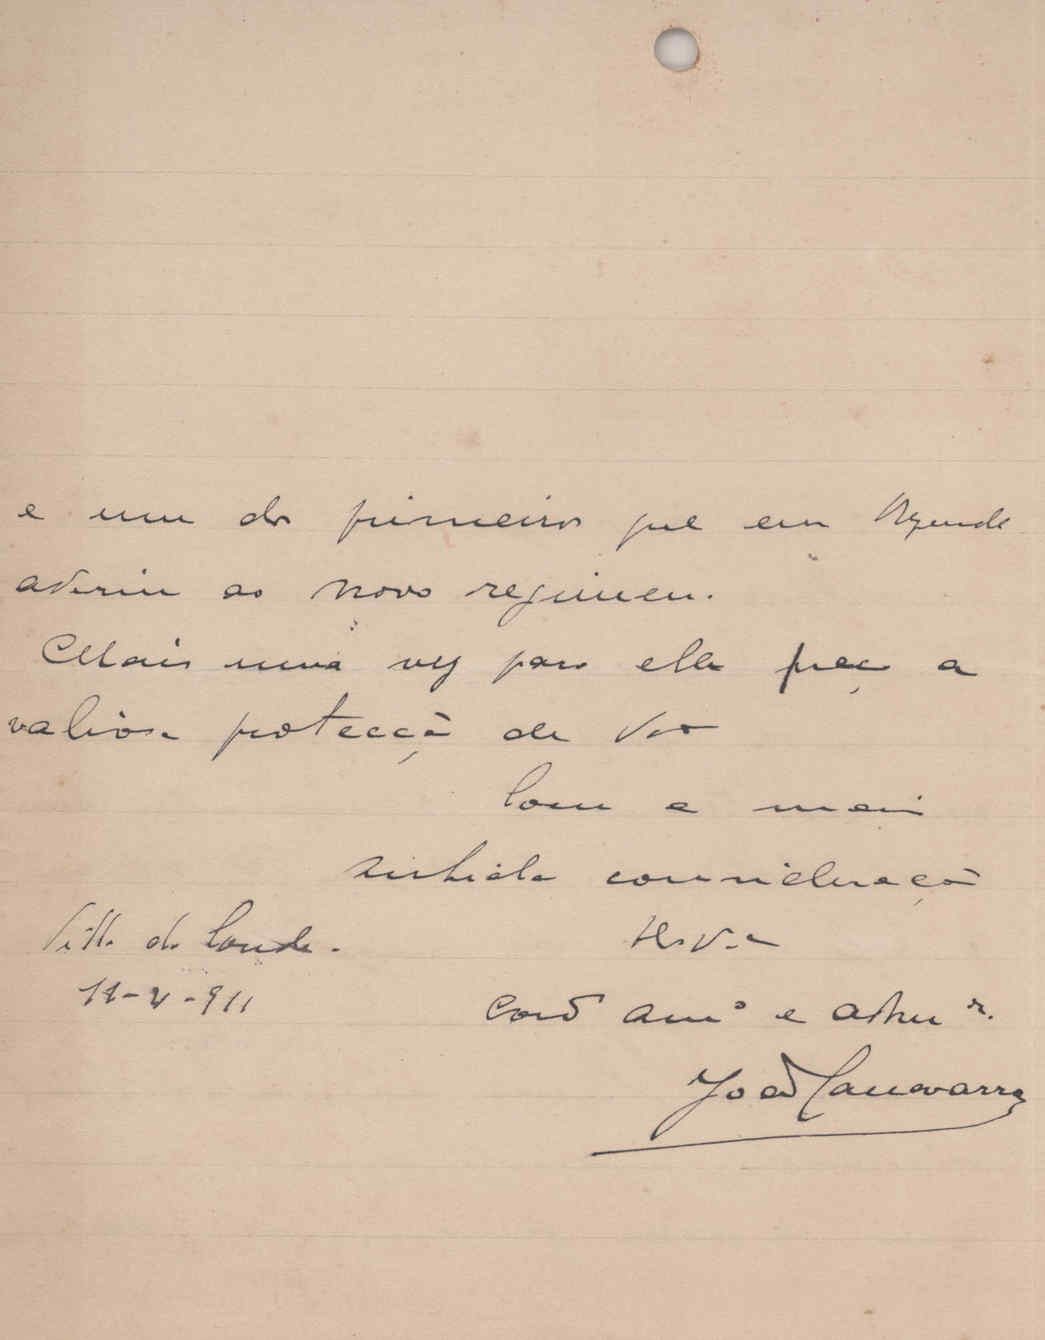 e um dos primeiros que em Rezende
aderiu ao novo regimen.
Mais uma vez para elle peço a
valiosa protecção de
Com a mais
subida consideração
Villa do Conde.
11-2-911
Cor.do Am.º e Adm.or.
João Canavarro